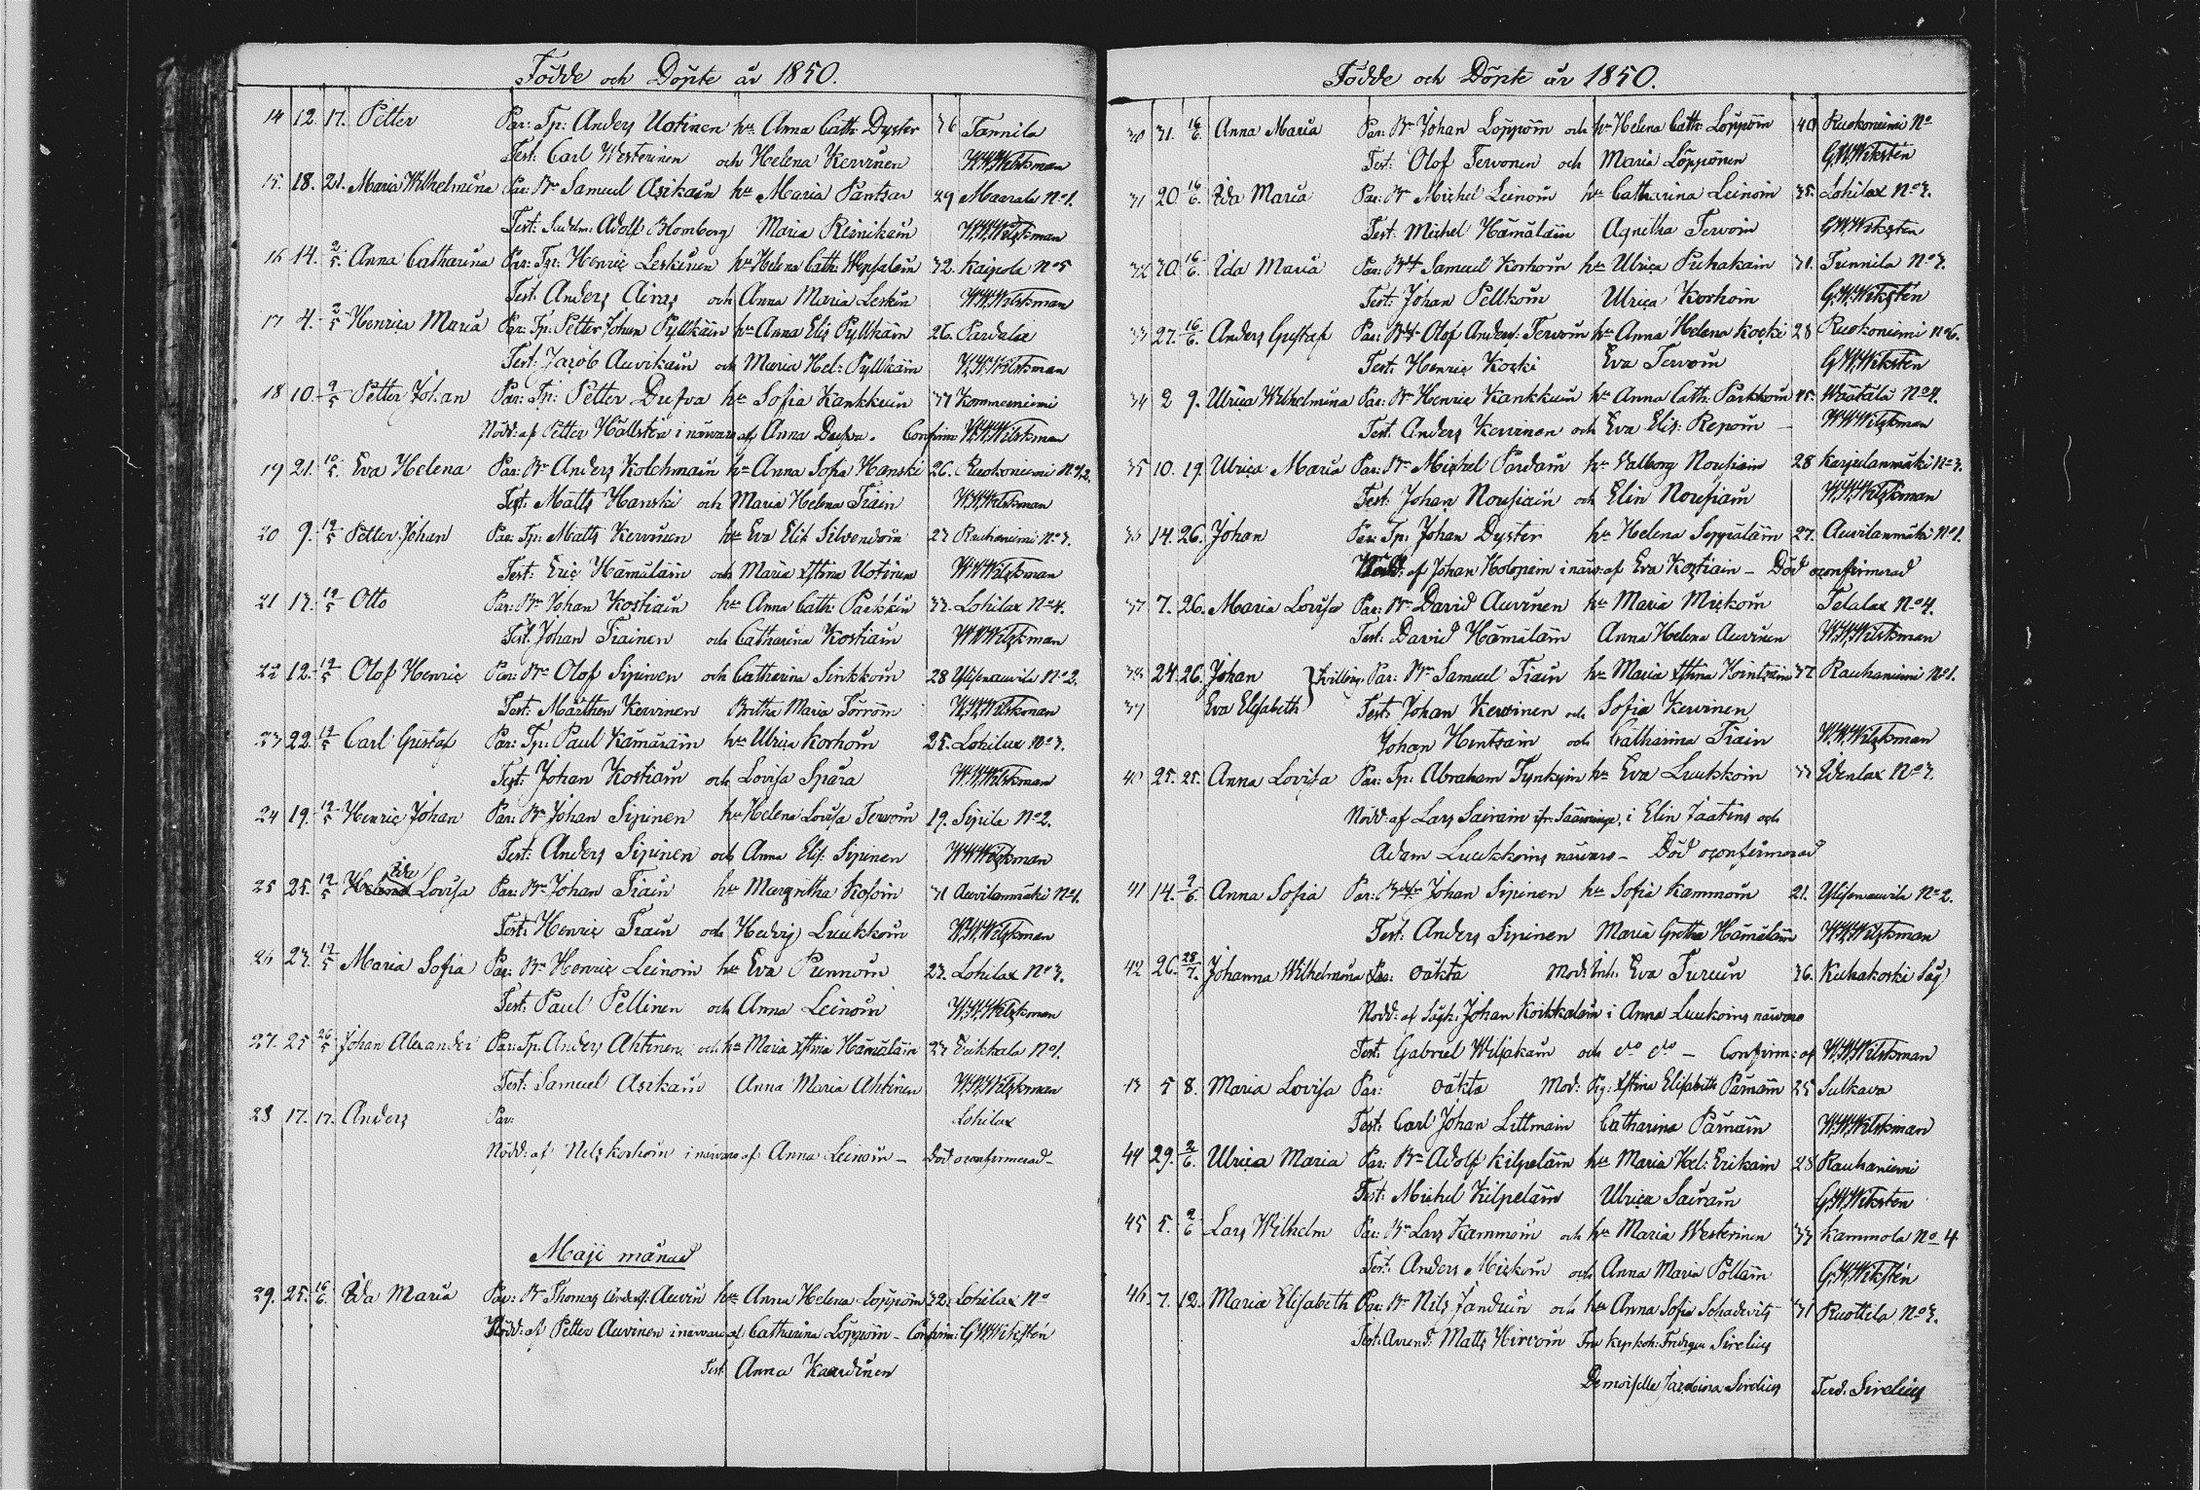 Födde och Döpte år 1850.
14 12. 17. Petter Par: Tp: Anders Uotinen hu Anna Cath: Dyster 36 Tannila
Test: Carl Westerinen och Helena Kervinen W.W.Wilskman
15. 18. 21. Maria Wilhelmina Par: Bn Samuel Asikain hu Maria Pantsar 29 Maarala No 1.
Test: Adolf Blomberg Maria W.W.Wilskman
16 14. 2/5. Anna Catharina Par: Tp: Henric Leskinen hu Helena Cath: 32. Kaipola No 5
Test: Anders Airas och Anna Maria Leskin W.W.Wilskman
17 4. 2/5 Henrica Maria Par: Tp: Petter Johan Pylkkäin hu Anna Elis Pylkkäin 26. Pardala
Test: Jacob Auvikain och Maria Hel: Pylkkäin W.W.Wilskman
18 10. 9/5 Petter Johan Par: Tp: Petter Dufva hu Sofia Kankkuin 31 Kommerniemi
Nödd: af Petter Hällsten i närvaro af Anna Dufva. Confirm W.W.Wilskman
19 21. 10/5. Eva Helena Par: Bn Anders Kolehmain hu Anna Sofia Hanski 26. Ruokoniemi
Test: Matts Hanski och Maria Helena Tiain W.W.Wilskman
20 9. 12/5 Petter Johan Par: Tp: Matts Kervinen hu Eva Elis Silvendoin 27 Rauhaniemi No 3.
Test: Eric Hämäläin och Maria Xstina Uotinen W.W.Wilskman
21 17. 12/5 Otto Par: Bn Johan Kostiain hu Anna Cath: Parkkin 33. Lohilax No 4.
Test: Johan Tiainen och Catharina Kostiain W.W.Wilskman
22 12. 12/5 Olof Henric Par: Bn Olof Sipinen och Catharina Sinkkoin 28 Ylisenauvila No 2.
Test: Mårthen Kervinen Britha Maria Törröin W.W.Wilskman
23 22. 12/5 Carl Gustaf Par: Tp: Paul Kämäräin hu Ulrica Korhoin 25. Lohilax No 3.
Test: Johan Kostiain och Lovisa Spåra W.W.Wilskman
24 19. 12/5 Henric Johan Par: Bn Johan Sipinen hu Helena Lovisa Tervoin 19. Sipila No 2.
Test: Anders Sipinen och Anna Elis: Sipinen W.W.Wilskman
Ida
25 25. 12/5 Lovisa Par: Bn Johan Tiain hu Margretha Kosoin 31 Auvilanmäki No 1.
Test: Henric Tiain och Hedvig Luukkoin W.W.Wilskman
26 23. 12/5 Maria Sofia Par: Bn Henric Leinoin hu Eva Punnoin 23. Lohilax No 3.
Test: Paul Pellinen och Anna Leinoin W.W.Wilskman
27. 25 26/5 Johan Alexander Par: Tp: Anders Ahtinen och hu Maria Xstina Hämäläin 27 No 1.
Test: Samuel Asikain Anna Maria Ahtinen W.W.Wilskman
28 17. 17. Anders Par: Lohilax
Nödd: af Nils Korhoin i närvaro af Anna Leinoin – Död oconfirmerad –
Maji månad
29. 25. 16/6. Ida Maria Par: Bn Thomas Anders: Auvin hu Anna Helena Löppöin 32. Lohilax No
Nödd: af Petter Auvinen i närvaro af Catharina Löppöin – Confirm: G.W.Wiksten
Test Anna Kaartinen
Födde och Döpte år 1850.
30 31. 16/6. Anna Maria Par: Bn Johan Löppöin och hu Helena Cath: Löppöin 40 Ruokoniemi No
Test: Olof Tervonen och Maria Löppönen G.W.Wiksten
31 20. 16/6. Ida Maria Par: Bn Michel Leinoin hu Catharina Leinoin 35. Lohilax No 3.
Test: Michel Hämäläin Agnetha Tervoin G.W.Wiksten
32 30. 16/6. Ida Maria Par: Samuel Korhoin hu Ulrica Puhakain 31. Tunnila No 3.
Test: Johan Pellkoin Ulrica Korhoin G.W.Wiksten
33 27. 16/6. Anders Gustaf Par: Olof Anders: Tervoin hu Anna Helena Koski 28 Ruokoniemi No 6.
Test: Henric Koski Eva Tervoin G.W.Wiksten
34 2 9. Ulrica Wilhelmina Par: Bn Henric Kankkuin hu Anna Cath: Parkkoin 45. Wäätälä No 4.
Test: Anders Kervinen och Eva Elis: Repoin – W.W.Wilskman
35 10. 19. Ulrica Maria Par: Bn Michel Pardain hu Valborg Nousiain 28 Karjulanmäki No 3.
Test: Johan Nousiain och Elin Nousiain W.W.Wilskman
36 14. 26. Johan Par: Tp: Johan Dyster hu Helena Seppäläin 27. Auvilanmäki No 1.
Nödd: af Johan Holopain i närv: af Eva Kostiain – Död oconfirmerad
37 7. 26. Maria Lovisa Par: Bn David Auvinen hu Maria Mickoin Telalax No 4.
Test: David Hämäläin Anna Helena Auvinen W.W.Wilskman
38 24. 26. Johan } Tvilling. Par: Bn Samuel Tiain hu Maria Xstina 37 Rauhaniemi No 1.
39 Eva Elisabeth Test: Johan Kervinen och Sofia Kervinen
Johan och Catharina Tiain W.W.Wilskman
40 25. 25. Anna Lovisa Par: Tp: Abraham Tynkyin hu Eva Luukkoin 33 Idenlax No 3.
Nödd: af Lars Sairain i Elin och
Adam Luukkoins närvaro – Död oconfirmerad
41 14. 2/6. Anna Sofia Par: Johan Sipinen hu Sofia Kammoin 21. Ylisenauvila No 2.
Test: Anders Sipinen Maria Gretha Hämäläin W.W.Wilskman
42 26. 28/7. Johanna Wilhelmina Par: oäkta Mod: Inh: Eva Turuin 36. Kuhakoski Såg
Nödd: af Johan Koikkalain i Anna Luukoins närvaro
Test: Gabriel Wiljakain och do do – Confirm: af W.W.Wilskman
43 5 8. Maria Lovisa Par: oäkta Mod: Pig: Xstina Elisabeth Pärnäin 25 Sulkava
Test: Carl Johan Littmain Catharina Pärnäin W.W.Wilskman
44 29. 2/6. Ulrica Maria Par: Bn Adolf Kilpeläin hu Maria Hel: Erikain 28 Rauhaniemi
Test: Michel Kilpeläin Ulrica Sairain G.W.Wiksten
45 5. 9/6 Lars Wilhelm Par: Bn Lars Kammoin och hu Maria Westerinen 33 Kammola No 4
Test: Anders Mickoin och Anna Maria Pölläin G.W.Wiksten
46 7. 12. Maria Elisabeth Par: Bn Nils Janduin och hu Anna Sofia Schadevitz 31 Ruottila No 3.
Test: Arrend: Matts Hirvoin Fru Sirelius
Demoiselle Sirelius Ferd. Sirelius